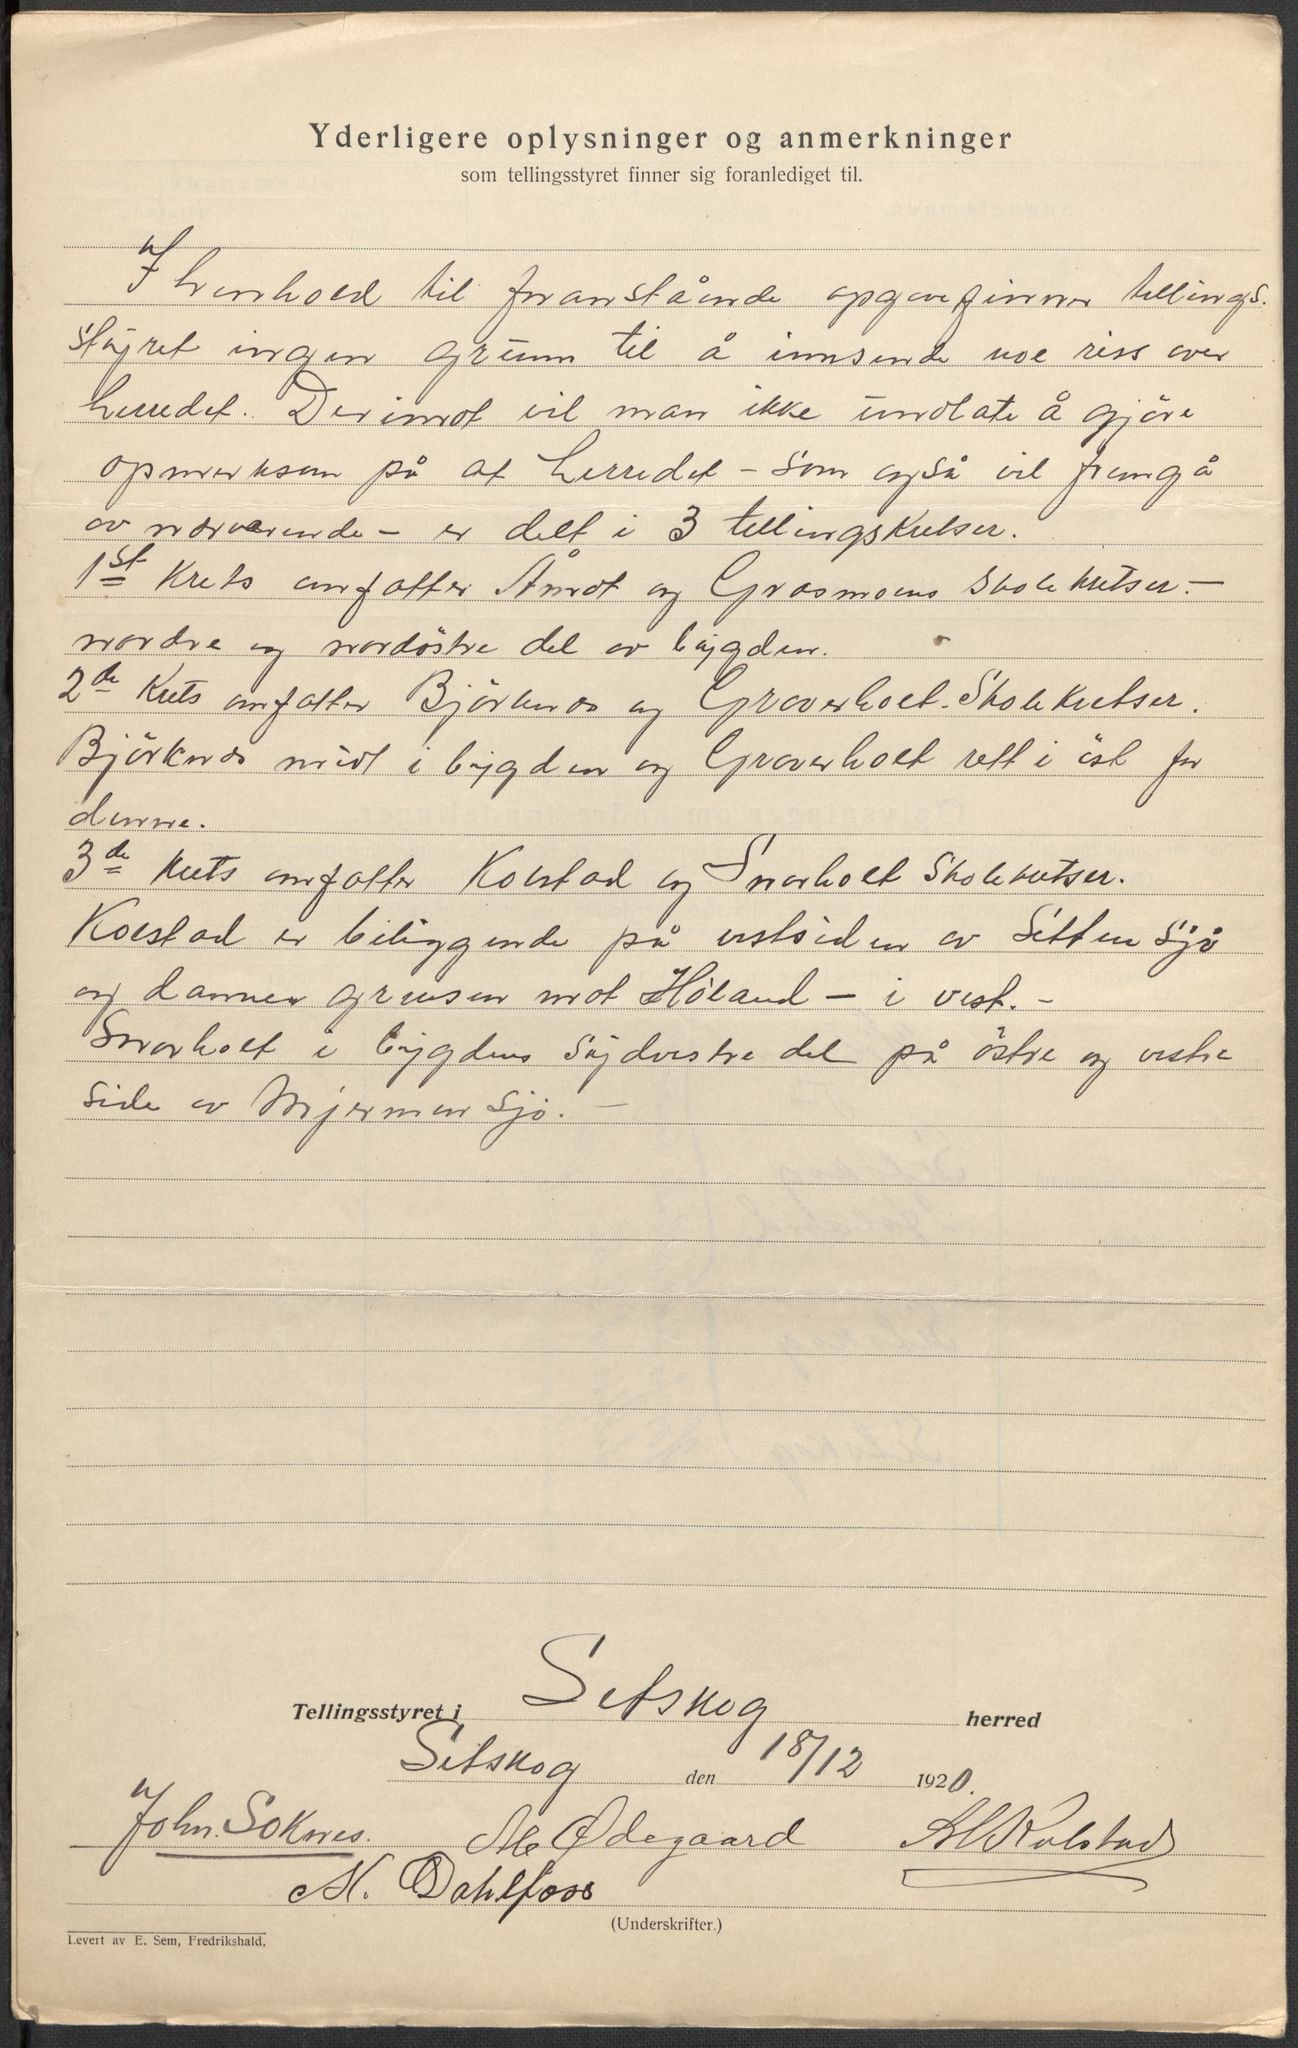 Yderligere oplysninger og anmerkninger
som tellingsstyret finner sig foranlediget til.
I henhold til foranstående opgave finner tellings-
styret ingen grunn til å innsende noe riss over
herredet. Derimot vil man ikke undlate å gjöre
opmerksom på at herredet - som også vil fremgå
av nærværende - er delt i 3 tellingskretser.
1st Krets omfatter Åmot og Grasmoens Skolekretser. -
nordre og nordöstre del av bygden.
2de Krets omfatter Björknes og Graverholt Skolekretser.
Björknes midt i bygden og Graverholt rett i öst for
denne.
3de Krets omfatter Kolstad og Snarholt Skolekretser.
Kolstad er beliggende på vestsiden av Setten Sjö
og danner grensen mot Höland - i vest. -
Snarholt i bygdens Sydvestre del på östre og vestre
side av Mjermen Sjö. -
Tellingsstyret i Setskog herred
Setskog den 18/12 1920.
John. Soknes. M Ødegaard A Kolstad
M. Dahlfoss
(Underskrifter.)
Levert av E. Sem, Fredrikshald.